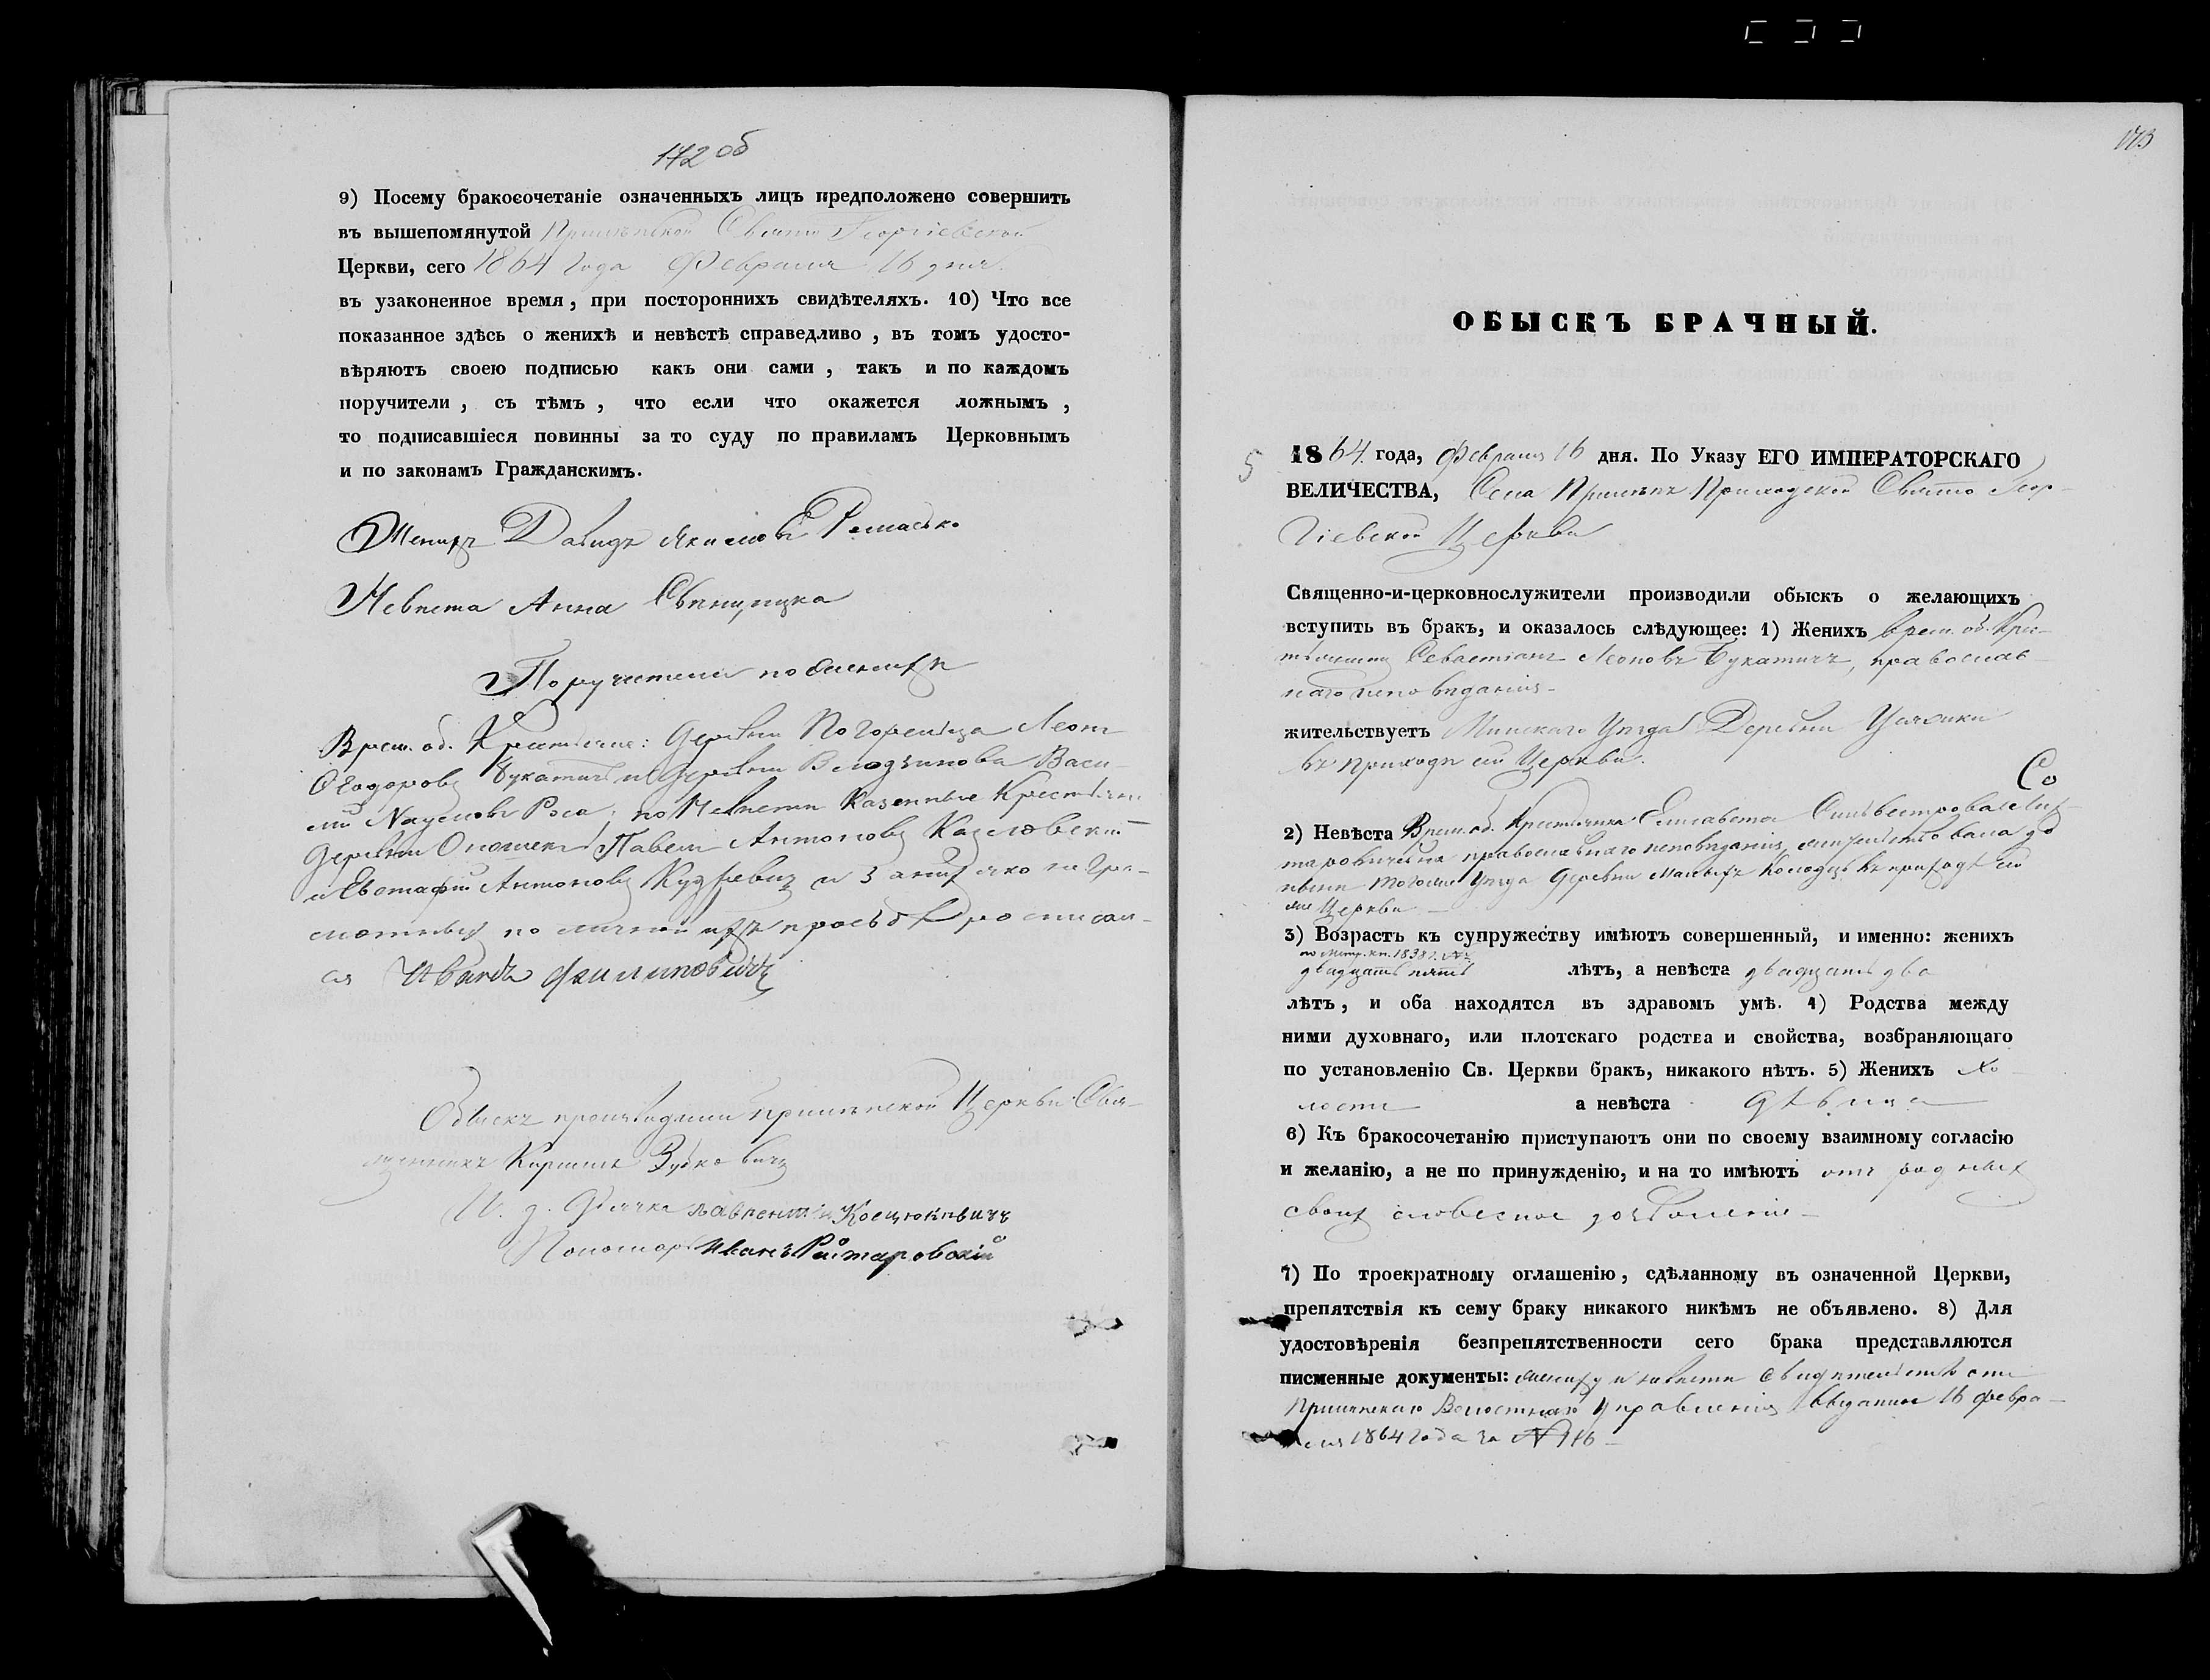 172 об
9) Посему бракосочетаніе означенныхъ лицъ предположено совершить
въ вышепомянутой Свято Георгіевской
Церкви, сего 1864 года Февраля 16 дня.
въ узаконенное время, при постороннихъ свидѣтеляхъ. 10) Что все
показанное здѣсь о женихѣ и невѣстѣ справедливо, въ томъ удосто-
вѣряютъ своею подписью какъ они сами, такъ и по каждомъ
поручители, съ тѣмъ, что если что окажется ложнымъ,
то подписавшіеся повинны за то суду по правиламъ Церковнымъ
и по законамъ Гражданскимъ.
Женихъ Давидъ Якимовъ
Невѣста Анна
Поручители по женихѣ
Врем. об. Крестьяне: деревни Леонъ
Ѳеодоровъ Букатичъ и деревни Васи-
лій Наумовъ Роса; по Невѣстѣ Казенные Крестьяне
деревни Павелъ Антоновъ Казловскій
и Евстафій Антоновъ и за нихъ яко негра-
мотныхъ по личной ихъ просьбѣ росписал-
ся Иванъ Филиповичъ
Обыскъ производили Церкви Свя-
щенникъ Кириллъ Зубковичъ
И. д. Дьячка Лаврентій Коецюкѣвичъ
Пономарь Иванъ Рытаровскій
173
ОБЫСКЪ БРАЧНЫЙ.
5 1864 года, Февраля 16 дня. По Указу ЕГО ИМПЕРАТОРСКАГО
ВЕЛИЧЕСТВА, Села Приходской Свято Геор-
гіевской Церкви
Священно-и-церковнослужители производили обыскъ о желающихъ
вступить въ бракъ, и оказалось слѣдующее: 1) Женихъ врем. об. Кре-
стьянинъ Севастіанъ Леоновъ Букатичъ, православ-
наго исповѣданія
жительствуетъ Минскаго Уѣзда Деревни
въ приходѣ сей Церкви.
Со
2) Невѣста Врем. об. Крестьянка Елисавета Сильвестрова
православнаго исповѣданія, жительствовала до
нынѣ того же Уѣзда деревни въ приходѣ сей
же Церкви
3) Возрастъ къ супружеству имѣютъ совершенный, и именно: женихъ
по Метр. кн. 1838 г. №
двадцать пять лѣтъ, а невѣста двадцать два
лѣтъ, и оба находятся въ здравомъ умѣ. 4) Родства между
ними духовнаго, или плотскаго родства и свойства, возбраняющаго
по установленію Св. Церкви бракъ, никакого нѣтъ. 5) Женихъ хо-
лостъ а невѣста дѣвица
6) Къ бракосочетанію приступаютъ они по своему взаимному согласію
и желанію, а не по принужденію, и на то имѣютъ отъ родныхъ
своихъ словесное дозволеніе
7) По троекратному оглашенію, сдѣланному въ означенной Церкви,
препятствія къ сему браку никакого никѣмъ не объявлено. 8) Для
удостовѣренія безпрепятственности сего брака представляются
писменные документы: жениху и невѣстѣ свидѣтельство
Волостнаго Управленія выданное 16 февра-
ля 1864 года за № 116